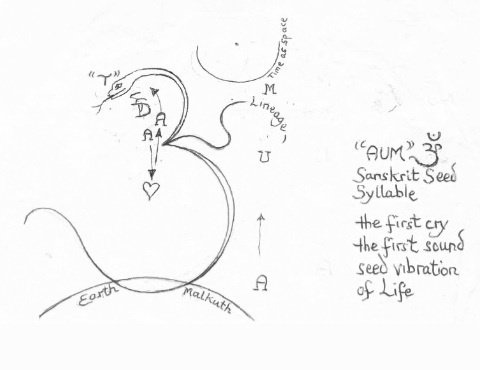 "T"
Time as Space
M
Lineage
A
A
U
A
Earth
Malkuth
"AUM" ॐ
Sanskrit Seed
Syllable
the first cry
the first sound
seed vibration
of Life